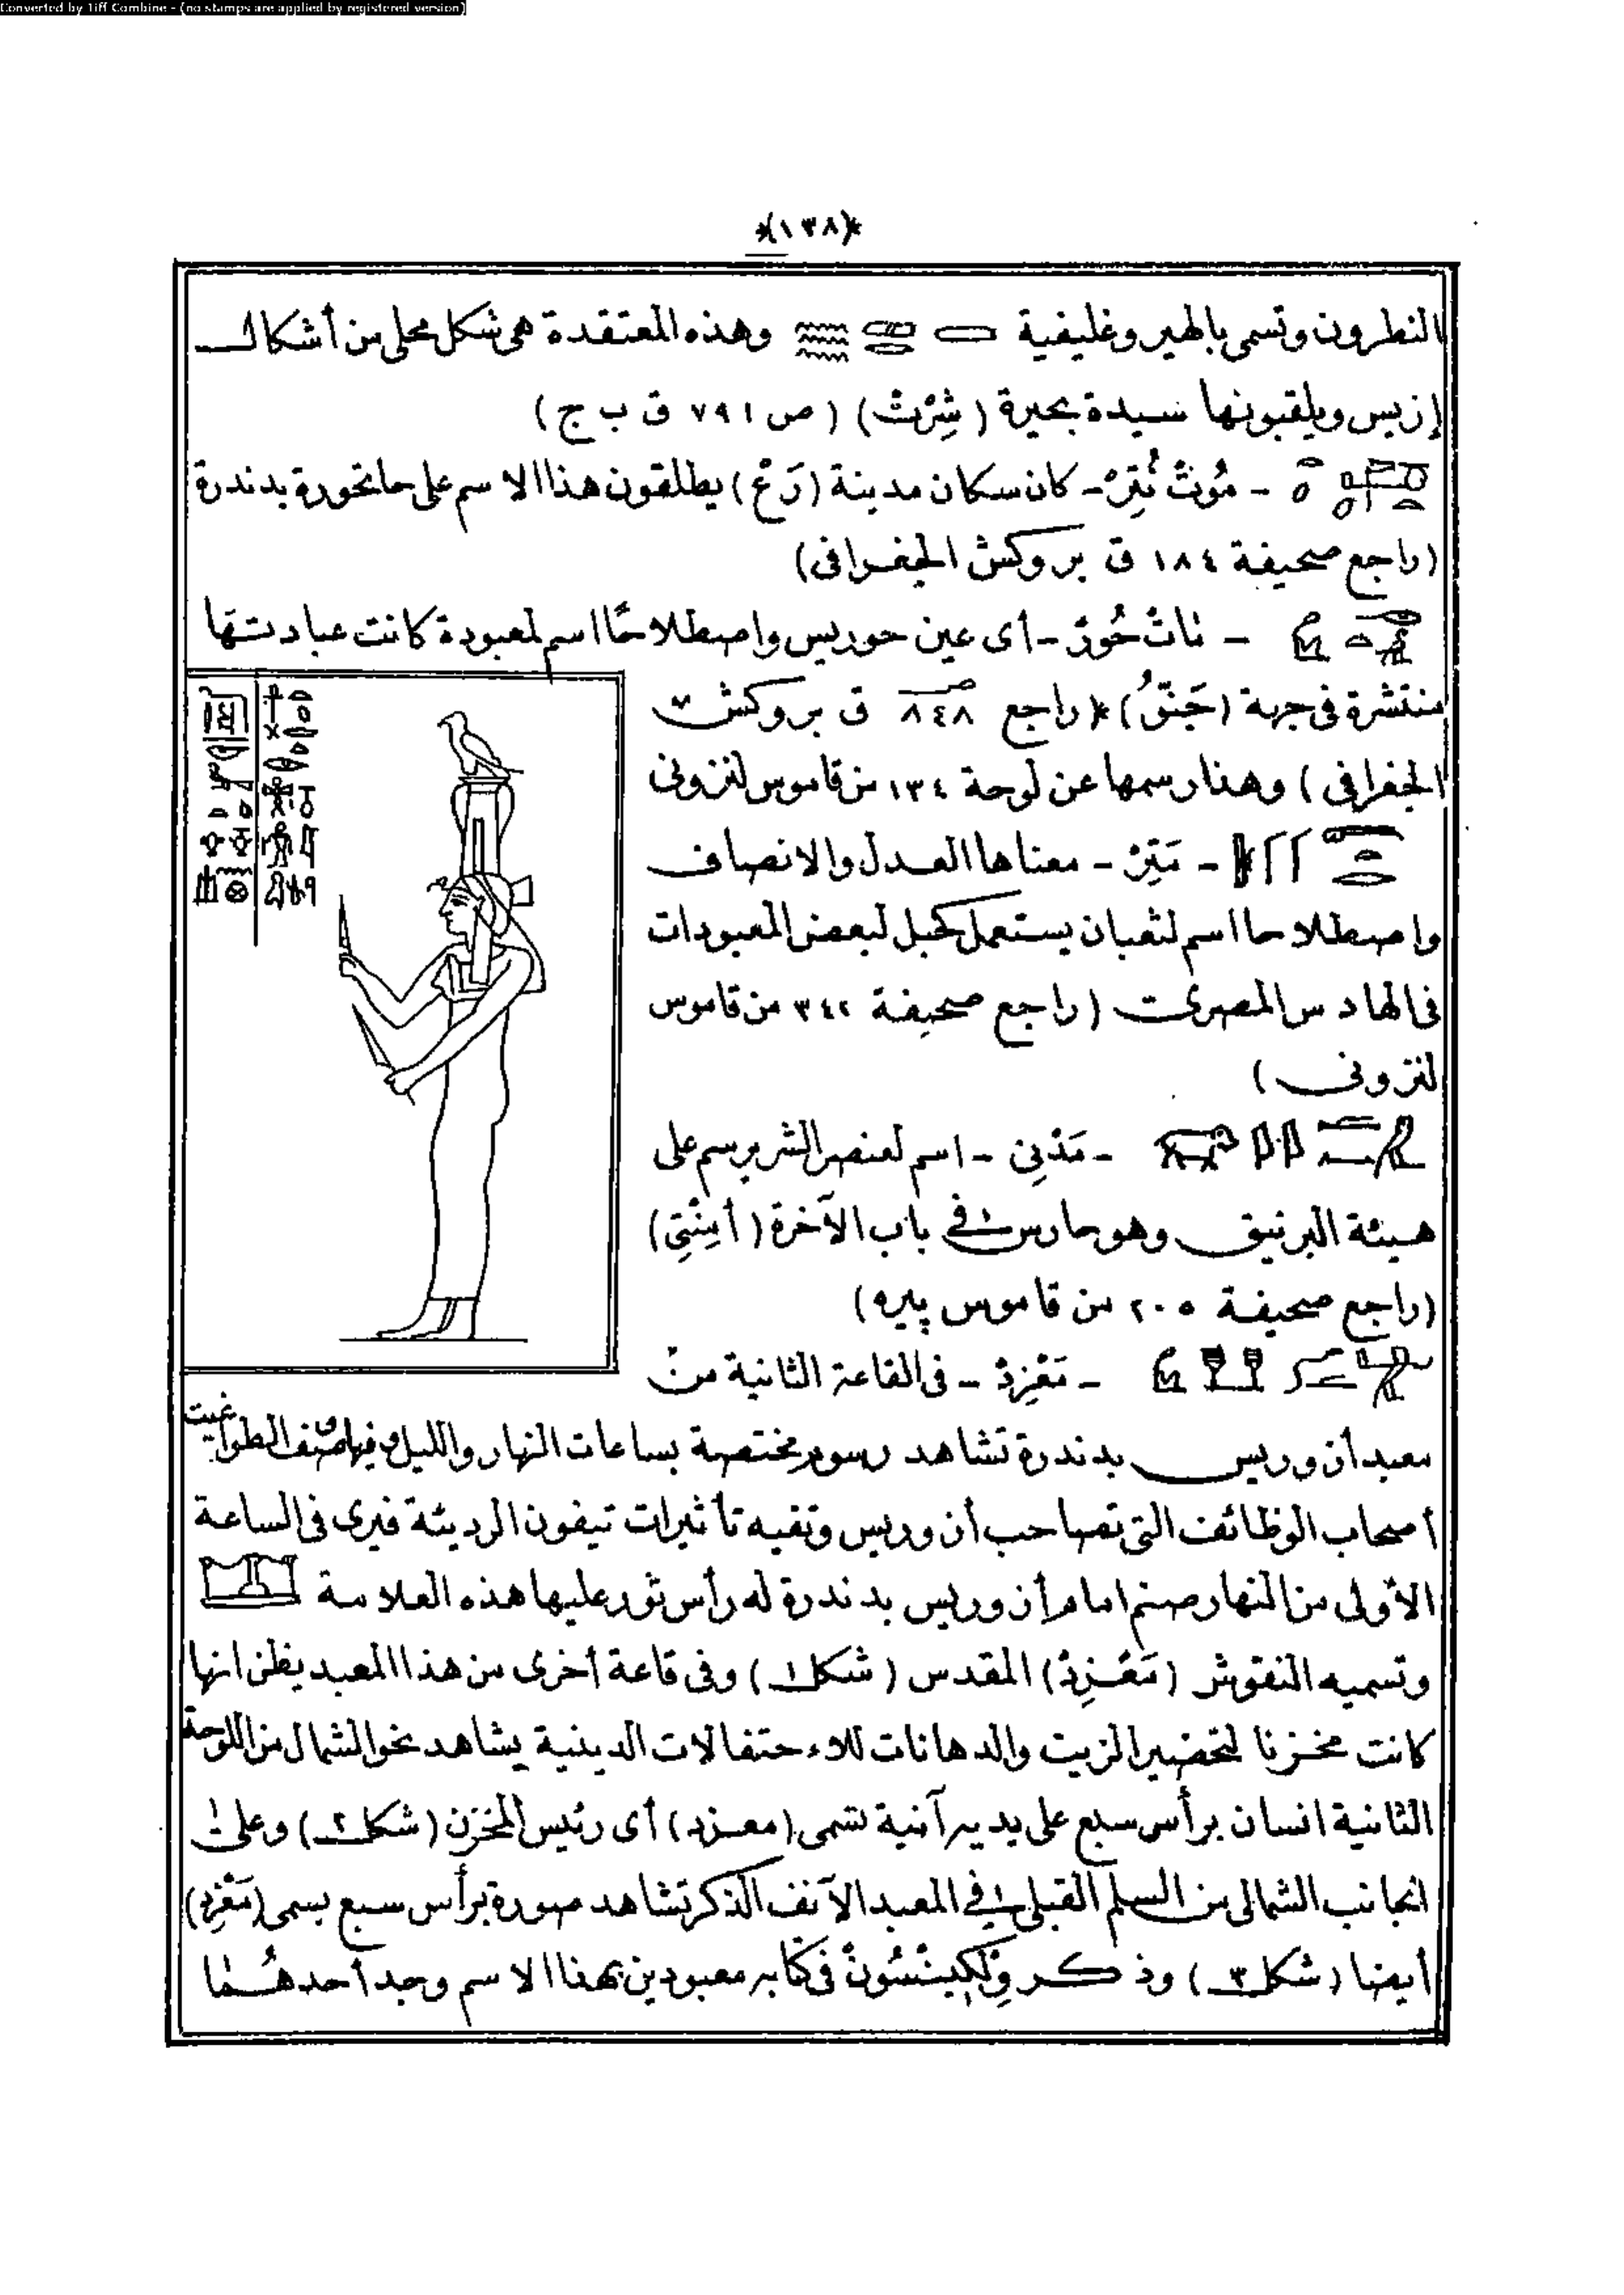 Converted by Tiff Combine - (no stamps are applied by registered version)
*(١٣٨)*
النطرون وتسمى بالهيروغليفية وهذه المعتقدة هى شكل محلى من أشكال
إزيس ويلقبونها سيدة بحيرة (شِرْت) (ص ٧٩١ ق ب ج)
- مُوتْ نُتِرْ - كان سكان مدينة (رَعْ) يطلقون هذا الاسم على حاتحورة بدندرة
(راجع صحيفة ١٨٤ ق بروكش الجغرافى)
- ناتْ حُورْ - أى عين حوريس واصطلاحًا اسم لمعبودة كانت عبادتها
منتشرة فى جهة (راجع ٨٤٨ ق بروكش
الجغرافى) وهنا رسمها عن لوحة ١٣٤ من قاموس لنزونى
- مَتِرْ - معناها العدل والانصاف
واصطلاحا اسم لثعبان يستعمل كحبل لبعض المعبودات
فى الهادس المصرى (راجع صحيفة ٣٤٢ من قاموس
لنزونى)
- مَدْنِى - اسم لعنصر الشر يرسم على
هيئة البرنيق وهو حارس فى باب الآخرة (أمِنْتِى)
(راجع صحيفة ٢٠٥ من قاموس پيره)
- مَعْزِدْ - فى القاعة الثانية من
معبد أنوريس بدندرة تشاهد رسوم مختصة بساعات النهار والليل وفيها صنف الطواغيت
أصحاب الوظائف التى تصاحب أنوريس وتقيه تأثيرات تيفون الرديئة فيرى فى الساعة
الأولى من النهار صنم امام أنوريس بدندرة له رأس ثور عليها هذه العلامة
وتسميه النقوش (مَعْزِدْ) المقدس (شكل ١) وفى قاعة أخرى من هذا المعبد يظن انها
كانت مخزنا لتحضير الزيت والدهانات للاحتفالات الدينية يشاهد نحو الشمال من اللوحة
الثانية انسان برأس سبع على يديه آنية تسمى (معزد) أى رئيس المخزن (شكل ٢) وعلى
الجانب الشمالى من السلم القبلى فى المعبد الآنف الذكر تشاهد صورة برأس سبع يسمى (مَعْزِد)
أيضا (شكل ٣) وذكر وِلْكِينْسُونْ فى كتابه معبودين بهذا الاسم وجد أحدهما